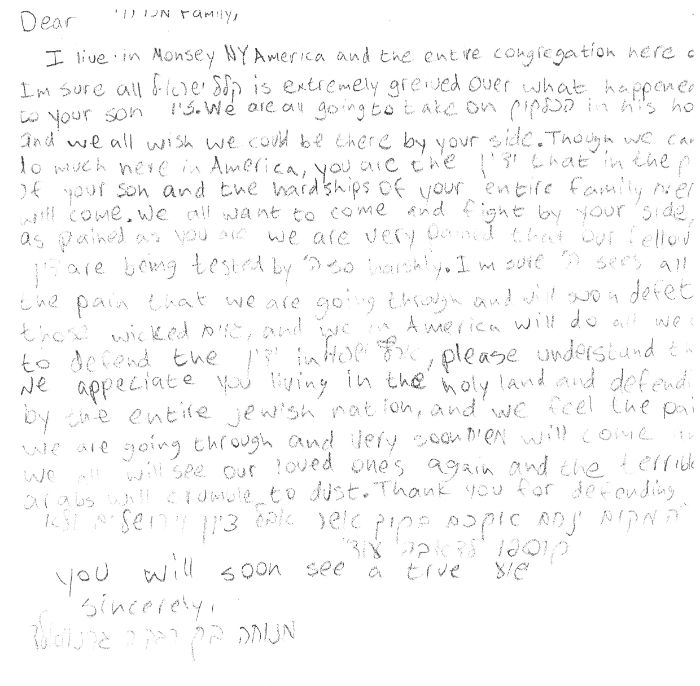 Dear Family,
I live in Monsey NY America and the entire congregation here
I'm sure all כלל ישראל is extremely greived over what happene
to your son We are all going to take on in his ho
and we all wish we could be there by your side. Though we can
do much here in America, you are the that in the
of your son and the hardships of your entire family
will come. We all want to come and fight by your side,
as pained as you are we are very pained that our fellow
are being tested by ה' so harshly. I'm sure ה' sees all
the pain that we are going through and will soon defet
those wicked and we in America will do all we
to defend the in ארץ ישראל, please understand th
We appeciate you living in the holy land and defendi
by the entire jewish nation, and we feel the pai
we are going through and very soon משיח will come
we all will see our loved ones again and the terrible
arabs will crumble to dust. Thank you for defending
המקום ינחם אתכם בתוך שאר אבלי ציון וירושלים ולא
לדאבה עוד
you will soon see a true
sincerely,
מנוחה